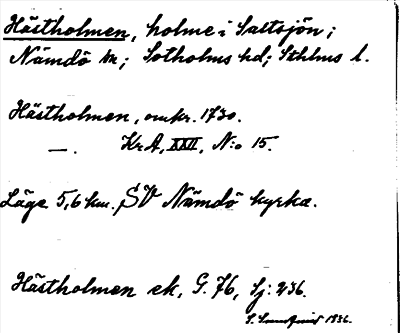 Hästholmen, holme i Saltsjön;
Nämdö sn; Sotholms hd; Sthlms l.
Hästholmen, omkr. 1730.
—. Kr.A, XXII, N:o 15.
Läge 5,6 km. SV Nämdö kyrka.
Hästholmen ek, G. 76, Sj: 236.
S. 1936.